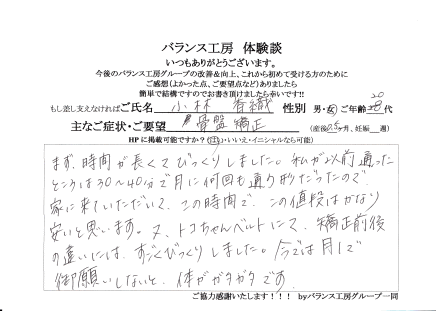 バランス工房 体験談
いつもありがとうございます。
今後のバランス工房グループの改善&向上、これから初めて受ける方のために
ご感想(よかった点、ご要望点など)ありましたら
簡単で結構ですのでお書き頂けましたら幸いです!!
もし差し支えなければご氏名 小林 香織 性別 男・女 ご年齢 20代
主なご症状・ご要望 骨盤矯正 (産後 ヶ月、妊娠 週)
HPに掲載可能ですか?(はい・いいえ・イニシャルなら可能)
まず、時間が長くてびっくりしました。私が以前通った
ところは30~40分で月に何回も通う形だったので、
家に来ていただいて、この時間で、この値段はかなり
安いと思います。又、トコちゃんベルトにて、矯正前後
の違いには、すごくびっくりしました。今では月1で
御願いしないと、体がガタガタです。
ご協力感謝いたします!!! byバランス工房グループ一同